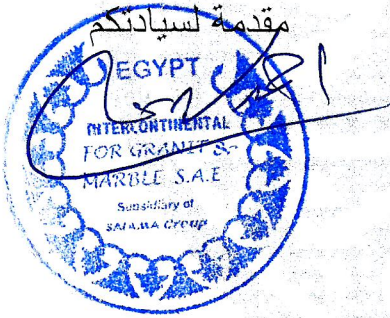 مقدمة لسيادتكم
EGYPT
INTERCONTINENTAL
FOR GRANIT &
MARBLE S.A.E
Subsidiary of
Group